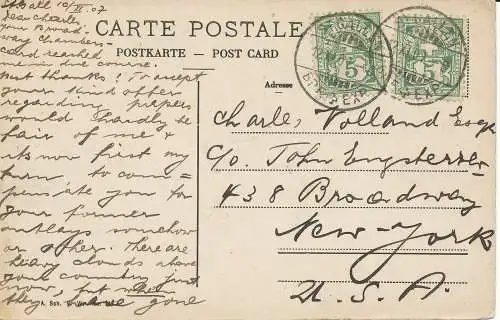 10/II.07
Dear Charley,
your Broad-
way Chambers-
Card reached
me in due course.
Best thanks! To accept
your kind offer
regarding papers
would hardly be
fair of me &
its now first my
turn to com=
pensate you for
your former
outlays somehow
or other. There are
heavy clouds above
your country just
now, but when
they have gone
CARTE POSTALE
POSTKARTE - POST CARD
Adresse
5
5
Charles Volland Esqre
c/o John Engsterrer
438 Broadway
New-York
U.S.A.